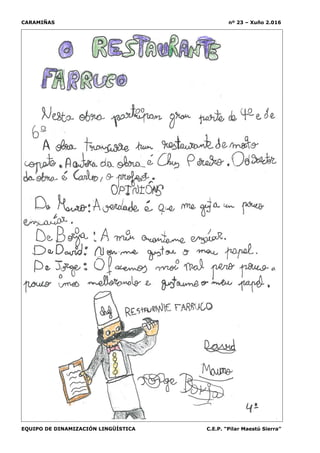 CARAMIÑAS nº 23 – Xuño 2.016
O RESTAURANTE
FARRUCO
Nesta obra participan gran parte de 4º e de
6º
A obra transcorre nun restaurante de moito
copete. A autora da obra é Chus Pereiro. O director
da obra é Carlos, o profesor.
OPINIÓNS
De Mauro: A verdade é que me gusta un pouco
ensaiar.
De Borja: A min encántame ensaiar.
De David: Non me gusta o meu papel.
De Jorge: O facemos moi mal pero pouco a
pouco imos mellorando e gústame o meu papel.
RESTAURANTE FARRUCO
David
Mauro
Jorge Borja
4º
EQUIPO DE DINAMIZACIÓN LINGÜÍSTICA C.E.P. "Pilar Maestú Sierra"